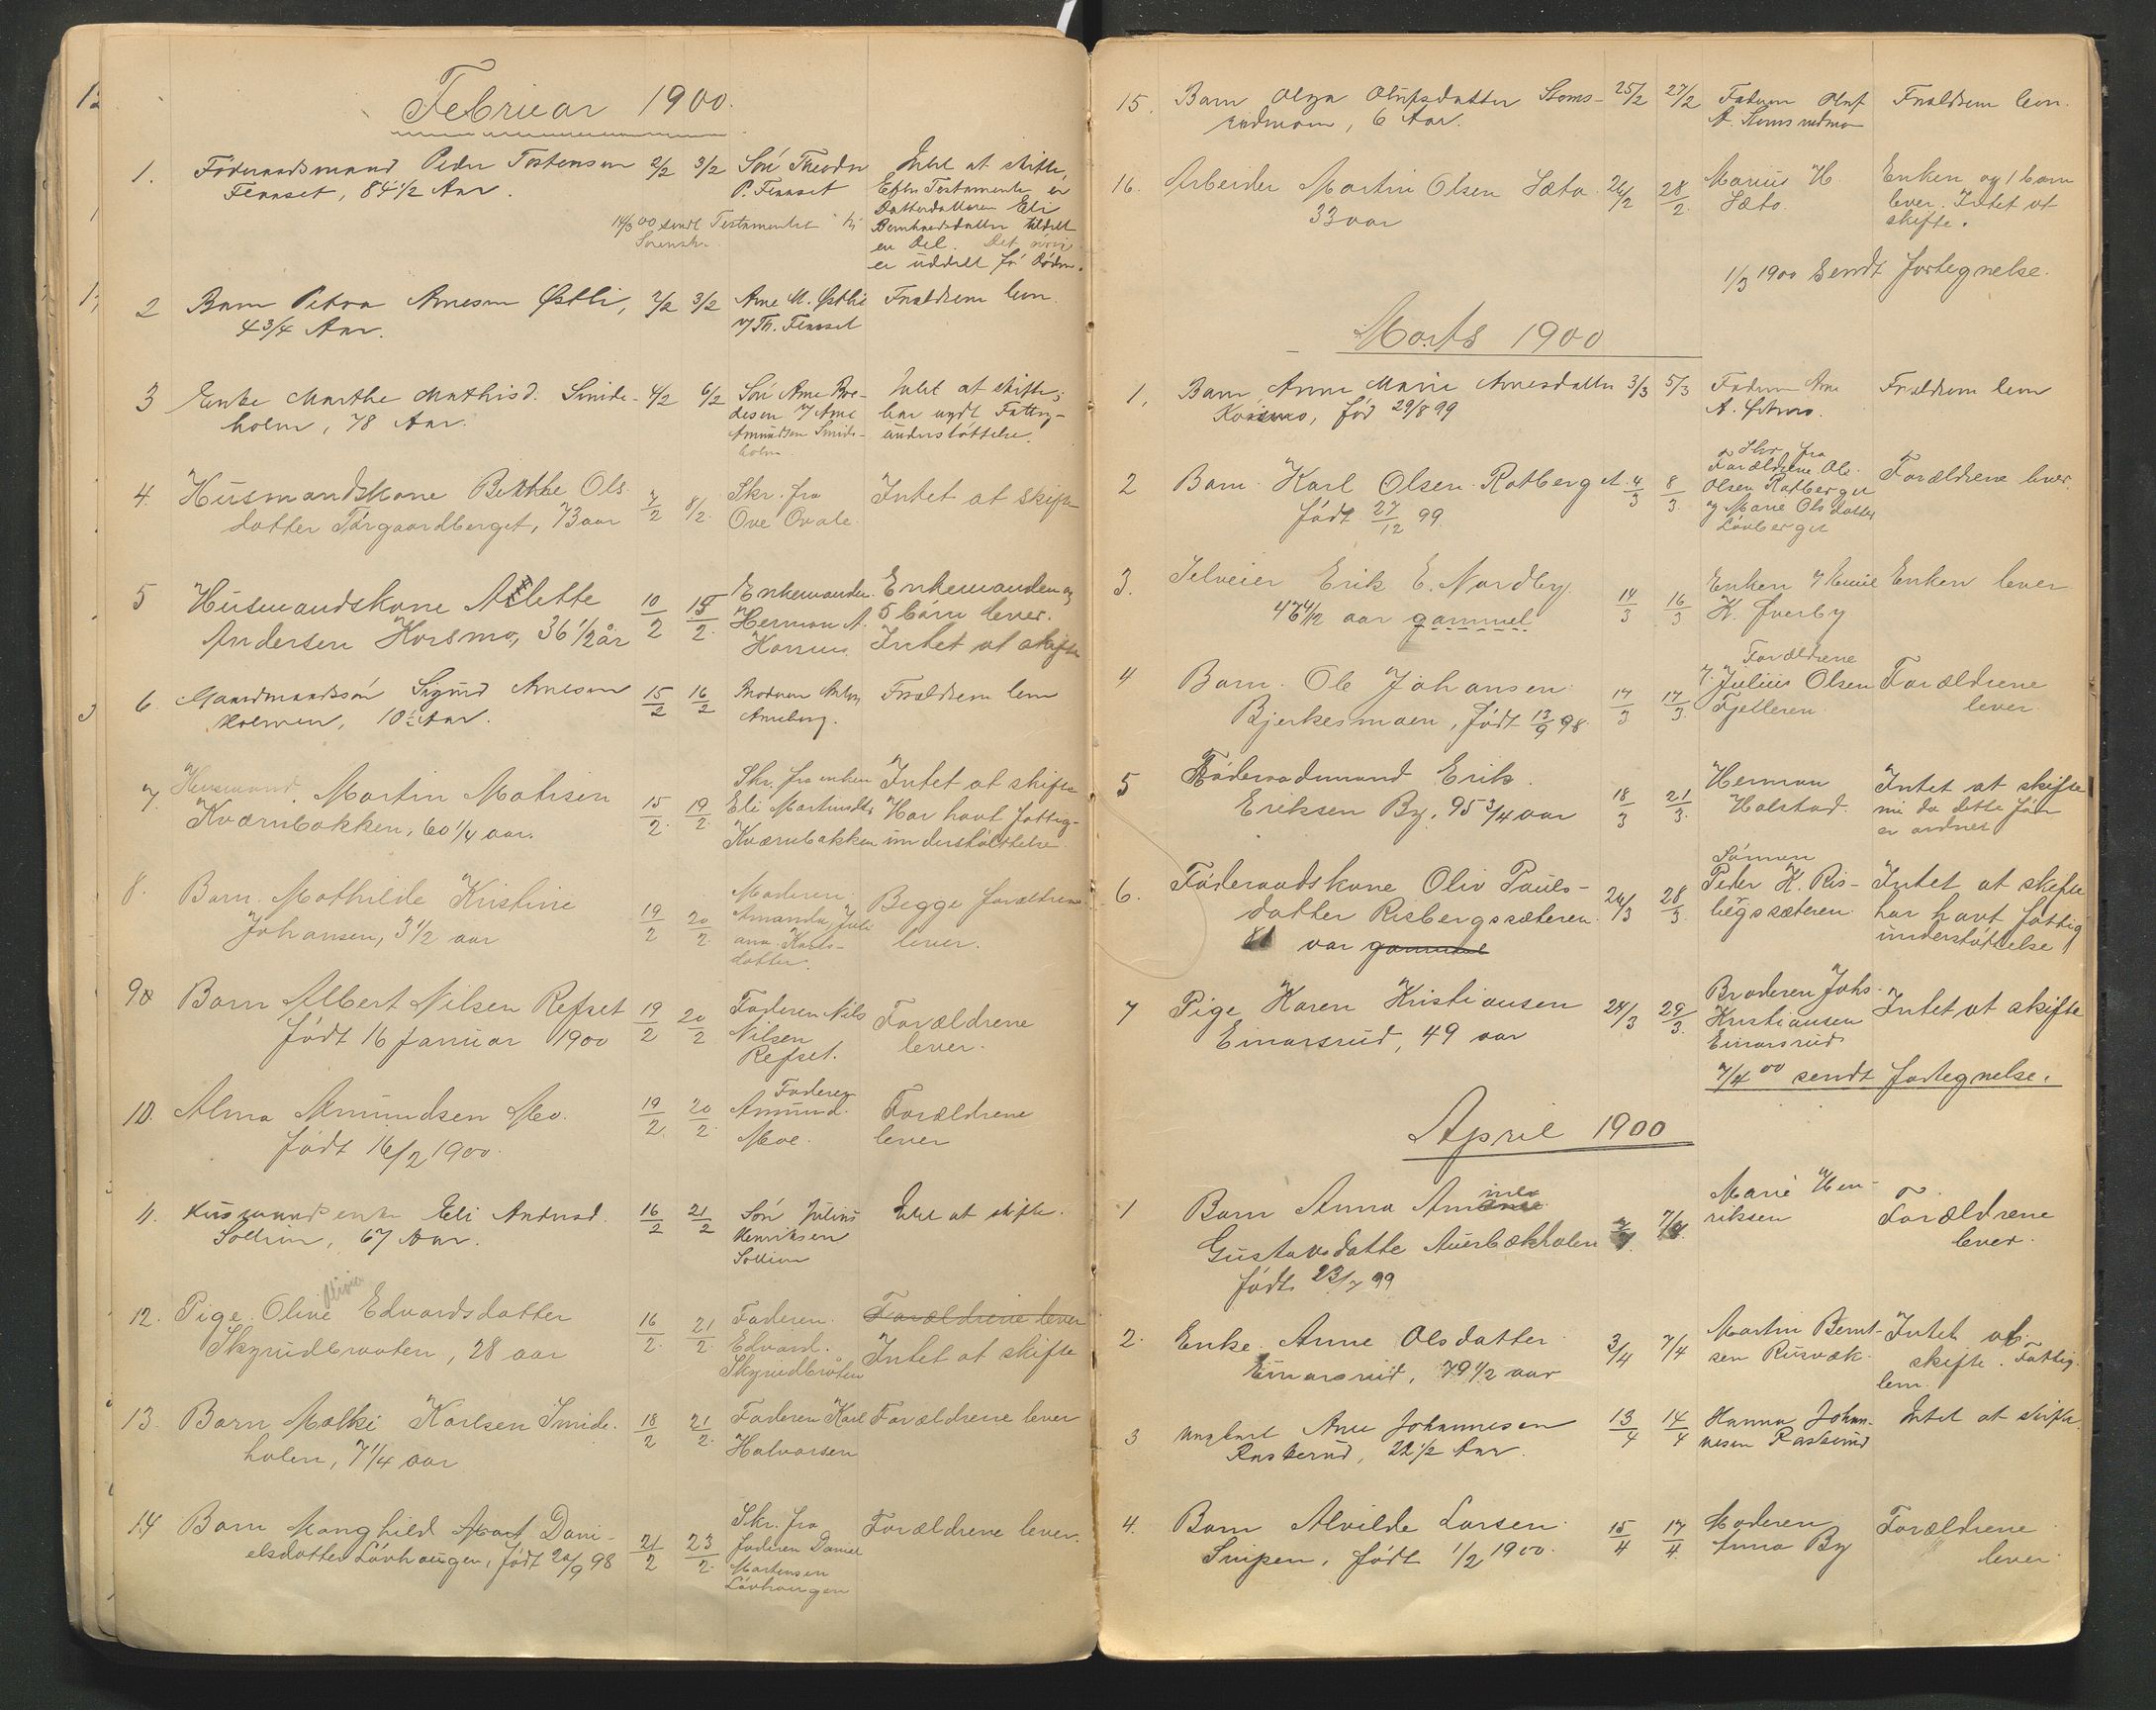 Februar 1900.
1. Föderaadsmand Peder Tostensen 2/2 3/2 Sön Theodor Intet at skifte,
Flaaset, 84 1/2 Aar. P. Flaaset Efter Testamente er
Datterdatteren Eli
14/3 00 sendt Testamentet til Bernhardsdatter tildelt
Sorenskr. en Del. Det övrige
er uddelt för Döden.
2 Barn Petra Arnesen Østli, 2/2 3/2 Arne M. Østlie Forældrene lever.
4 3/4 Aar. v/ Th. Flaaset
3 Enke Marthe Mathisd. Smide- 4/2 6/2 Sön Arne Bre- Intet at skifte;
holen, 78 Aar. desen v/ Arne har nydt Fattig-
Amundsen Smide- understöttelse.
holen
4. Husmandskone Berthe Ols 7/2 8/2. Skr. fra Intet at skifte
datter Torgaardberget, 73 aar Ove Ovale.
5 Husmandskone Alette 10/2 15/2. Enkemanden. Enkemanden og
Andersen Korsmo, 36 1/2 år Herman A. 5 börn lever.
Korsmo. Intet at skifte
6. Gaardmandssön Sigurd Arnesen 15/2 16/2 Broderen Anton Forældrene lever
Holmen, 10 1/2 Aar. Arneberg.
7. Husmand. Martin Mathisen 15/2. 19/2. Skr. fra enken Intet at skifte
Kværnbakken, 60 1/4 aar. Eli Martinsdtr. Har havt fattig-
Kværnbakken understöttelse.
8. Barn. Mathilde Kristine 19/2 20/2. Moderen Begge forældrene
Johansen, 3 1/2 aar Amanda Juli lever.
ana Karls-
datter.
9 Barn Albert Nilsen Refset 19/2 20/2 Faderen Nils Forældrene
født 16 januar 1900 Nilsen lever.
Refset.
10. Alma Amundsen Mo. 19/2. 20/2. Faderen Forældrene
født 16/2 1900. Amund. lever
Moe.
11. Husmandsenke Eli Andersd. 16/2 21/2 Sön Julius Intet at skifte.
Sollien, 67 Aar. Henriksen
Sollien
12. Pige. Oline Edvardsdatter 16/2. 21/2. Faderen. Forældrene lever
Skyrudbraaten, 28 aar Edvard. Intet at skifte
Skyrudbråten
13. Barn Malki Karlsen Smide- 18/2 21/2. Faderen Karl Forældrene lever
holen, 7 1/4 aar Halvorsen
14 Barn Manghild Mart. Dani- 21/2 23/2. Skr. fra Forældrene lever.
elsdatter Lövhaugen, født 20/9 98 faderen Daniel
Martensen
Lövhaugen
15. Barn Olga Olufsdatter Stoms- 25/2 27/2 Faderen Oluf Forældrene lever.
rudmoen, 6 Aar. A. Stomsrudmo
16. Arbeider Martin Olsen Sæto. 26/2 28/2. Marius H. Enken og 1 barn
33 aar Sæto. lever. Intet at
skifte.
1/3 1900 Sendt fortegnelse.
Marts 1900
1. Barn, Anna Marie Arnesdatter 3/3 5/3 Faderen Arne Forældrene lever
Korsmo, född 29/8 99 A. Östmo.
2 Barn. Karl Olsen. Rotberget. 4/3 8/3. Skr. fra Forældrene lever.
født 27/12 99. Forældrene Ole.
Olsen Rotberget
og Marie Olsdatter
Lövberget
3. Selveier Erik E. Nordby. 14/3 16/3 Enken v/ Emil Enken lever
47 4/12 aar gammel K. Øverby
4 Barn. Ole Johansen. 17/3 17/3. Forældrene Forældrene
Bjerkesmoen, født 13/9 98. v. Julius Olsen lever
Fjelleren.
5 Föderaadmand Erik. 18/3 21/3. Herman Intet at skifte
Eriksen By. 95 3/4 aar Halstad. nu da dette för
er ordnet
6. Föderaadskone Oliv Pauls- 24/3 28/3. Sönnen Intet at skifte
datter Risbergssæteren. Peder K. Ris- har havt fattig
81 aar gammel bergssæteren. understöttelse
7 Pige Karen Kristiansen 24/3 29/3. Broderen Johs. Intet at skifte
Einarsrud, 49 aar Kristiansen
Einarsrud
7/4 00 sendt fortegnelse.
April 1900
1 Barn Anna Amanda Marie Hen- Forældrene
Gustavsdatte Auerbækholen riksen lever.
født 23/7 99
2. Enke. Anne Olsdatter 3/4 7/4 Martin Bernt- Intet at
Einarsrud, 79 1/2 aar sen Rusvæk. skifte. Fattig-
lem.
3 Ungkarl Arne Johannesen 13/4 14/4 Hanna Johan- Intet at skifte.
Rasterud, 22 1/2 Aar. nesen Rasterud
4. Barn Alvilde Larsen 15/4 17/4. Moderen Forældrene
Snipen, født 1/2 1900. Anna By lever.